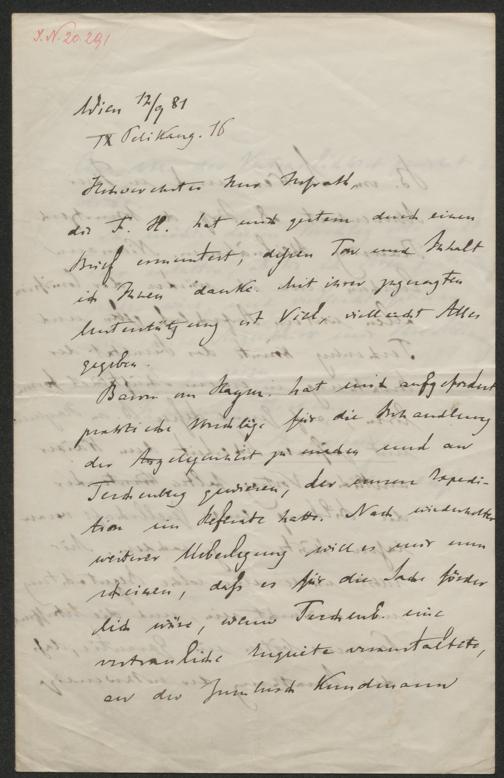 J.N. 20.291
Wien 12/9 81
IX Pelikang. 16
Hochverehrter Herr Hofrath,
die F. H. hat mich gestern durch einen
Brief ermuntert, dessen Ton und Inhalt
ich Ihnen danke. Mit ihrer zugesagten
Unterstützung ist Viel, vielleicht Alles
gegeben.
Baron von Haym. hat mich aufgefordert
praktische Vorschläge für die Behandlung
der Angelegenheit zu machen und an
Teschenberg gewiesen, der unsere Expedi-
tion im Referate hatte. Nach wiederholter
weiterer Ueberlegung will es mir nun
scheinen, daß es für die Sache förder
lich wäre, wenn Teschenb. eine
vertrauliche Enquete veranstaltete,
an der Kundmann